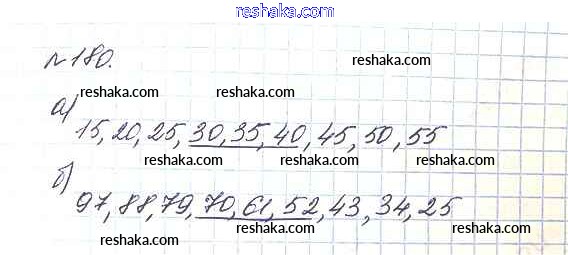 reshaka.com
№180.
reshaka.com
reshaka.com reshaka.com
а)
15, 20, 25, 30, 35, 40, 45, 50, 55
reshaka.com reshaka.com
б)
97, 88, 79, 70, 61, 52, 43, 34, 25
reshaka.com reshaka.com